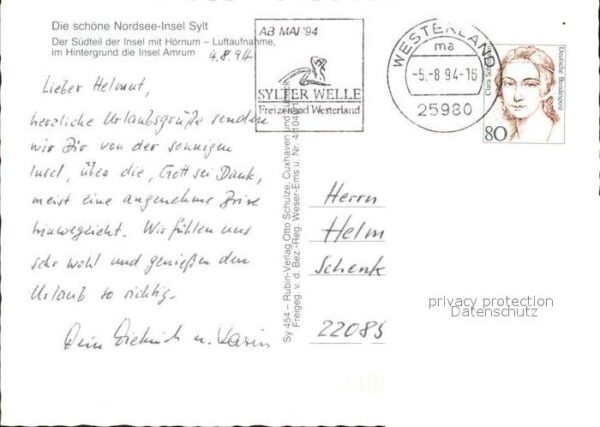 Die schöne Nordsee-Insel Sylt
Der Südteil der Insel mit Hörnum – Luftaufnahme,
im Hintergrund die Insel Amrum
4.8.94
Lieber Helmut,
herzliche Urlaubsgrüße senden
wir Dir von der sonnigen
Insel, über die, Gott sei Dank,
meist eine angenehme Brise
hinwegzieht. Wir fühlen uns
sehr wohl und genießen den
Urlaub so richtig.
Dein Dietrich u. Karin
AB MAI '94
SYLTER WELLE
Freizeitbad Westerland
WESTERLAND
ma
-5.-8 94-16
25980
Deutsche Bundespost
Clara
80
Sy 454 – Rubin-Verlag Otto Schulze, Cuxhaven und
Freigeg. v. d. Bez.-Reg. Weser-Ems u. Nr.
Herrn
Helm
Schenk
22085
privacy protection
Datenschutz